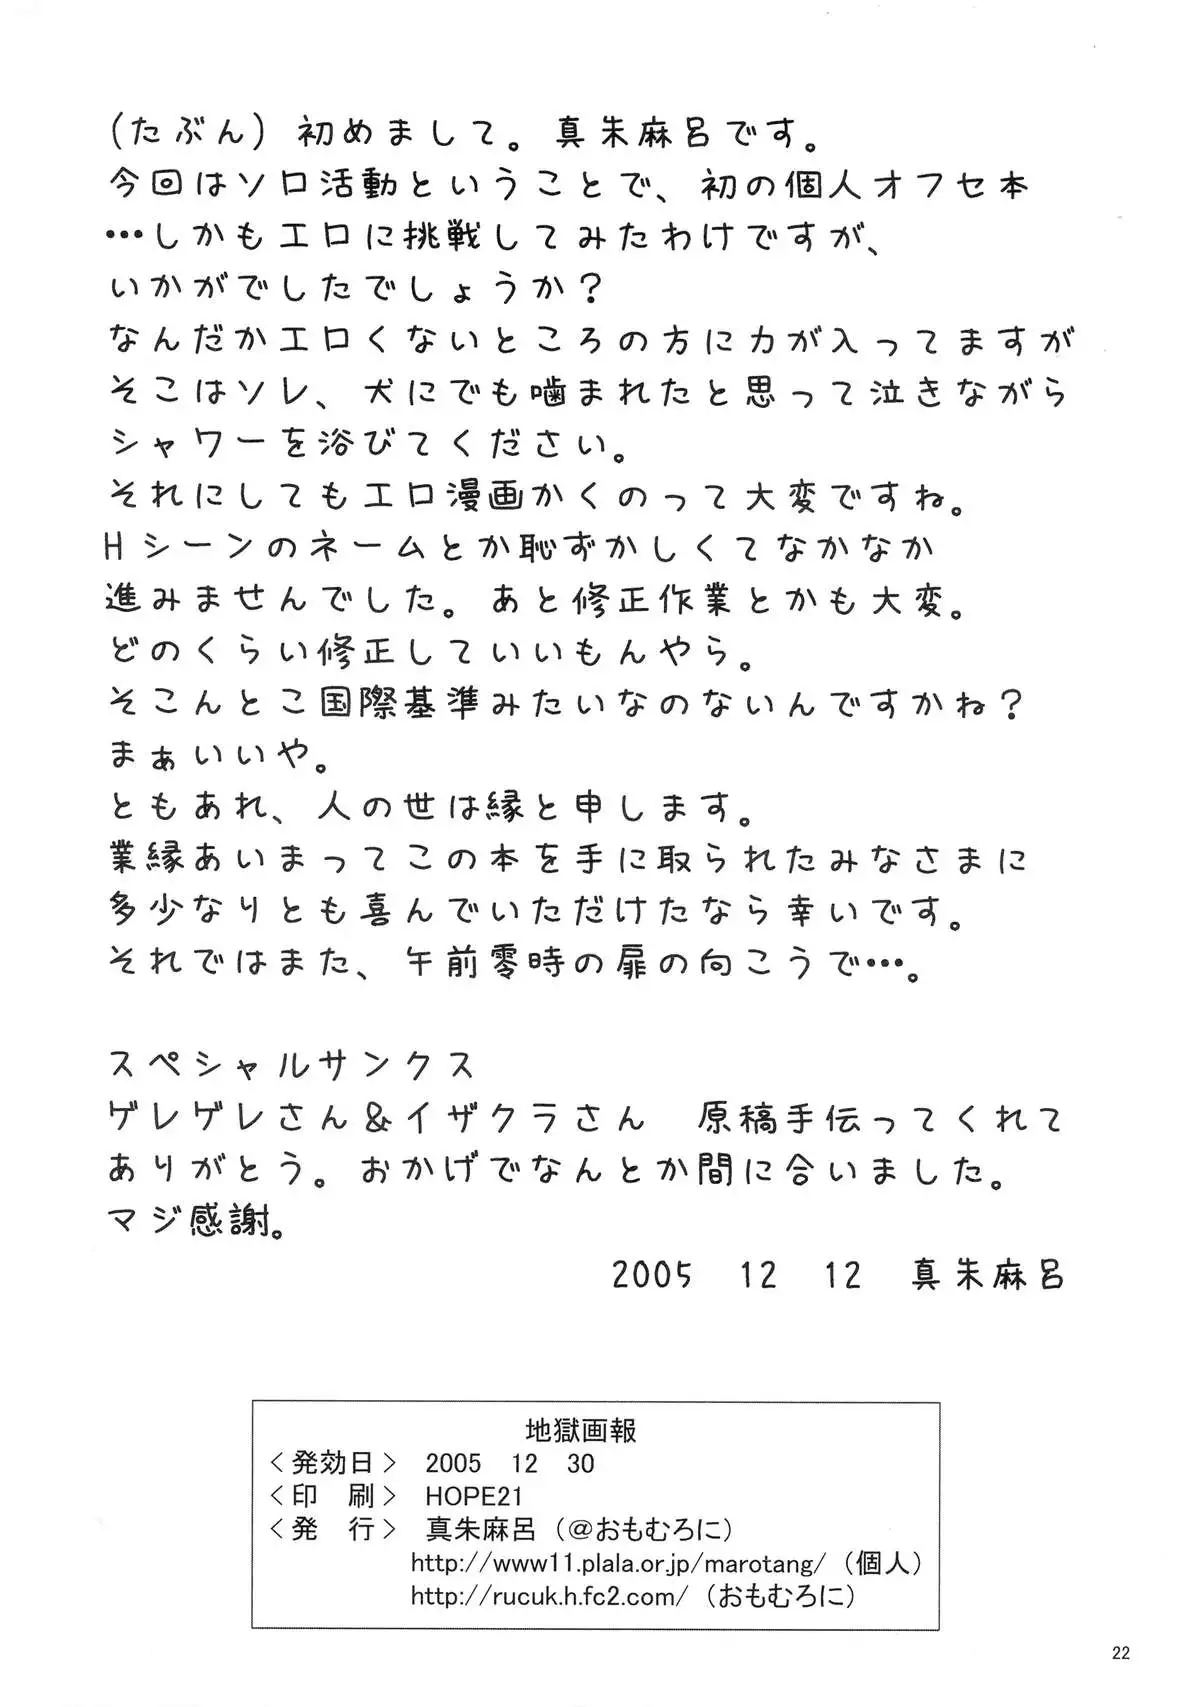 (たぶん) 初めまして。真朱麻呂です。
今回はソロ活動ということで、初の個人オフセ本
…しかもエロに挑戦してみたわけですが、
いかがでしたでしょうか？
なんだかエロくないところの方に力が入ってますが
そこはソレ、犬にでも噛まれたと思って泣きながら
シャワーを浴びてください。
それにしてもエロ漫画かくのって大変ですね。
Hシーンのネームとか恥ずかしくてなかなか
進みませんでした。あと修正作業とかも大変。
どのくらい修正していいもんやら。
そこんとこ国際基準みたいなのないんですかね？
まぁいいや。
ともあれ、人の世は縁と申します。
業縁あいまってこの本を手に取られたみなさまに
多少なりとも喜んでいただけたなら幸いです。
それではまた、午前零時の扉の向こうで…。
スペシャルサンクス
ゲレゲレさん＆イザクラさん　原稿手伝ってくれて
ありがとう。おかげでなんとか間に合いました。
マジ感謝。
2005　12　12　真朱麻呂
地獄画報
＜発効日＞　2005　12　30
＜印　刷＞　HOPE21
＜発　行＞　真朱麻呂（＠おもむろに）
http://www11.plala.or.jp/marotang/（個人）
http://rucuk.h.fc2.com/（おもむろに）
22